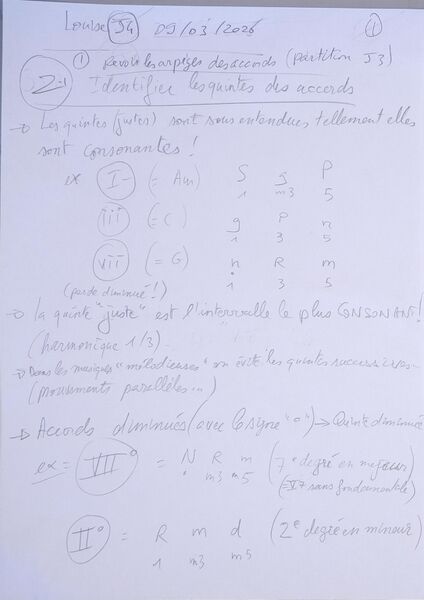 Louise J4 09/03/2026 (1)
① Revoir les arpèges des accords (partition J3)
2-1 Identifier les quintes des accords
→ Les quintes (justes) sont sous entendues, tellement elles
sont consonantes !
ex I- (= Am) S g P
1 m3 5
iii (= C) g P n
1 3 5
vii (= G) n R m
(pas de diminué !) 1 3 5
→ la quinte "juste" est l'intervalle le plus CONSONANT !
(harmonique 1/3)-
→ Dans les musiques "mélodieuses" on évite les quintes successives-
(mouvements parallèles...)
→ Accords diminués (avec le signe "o") → Quinte diminuée
ex = VII° = N R m (7° degré en majeur)
m3 m5 (=V7 sans fondamentale)
II° = R m d (2e degré en mineur)
1 m3 m5